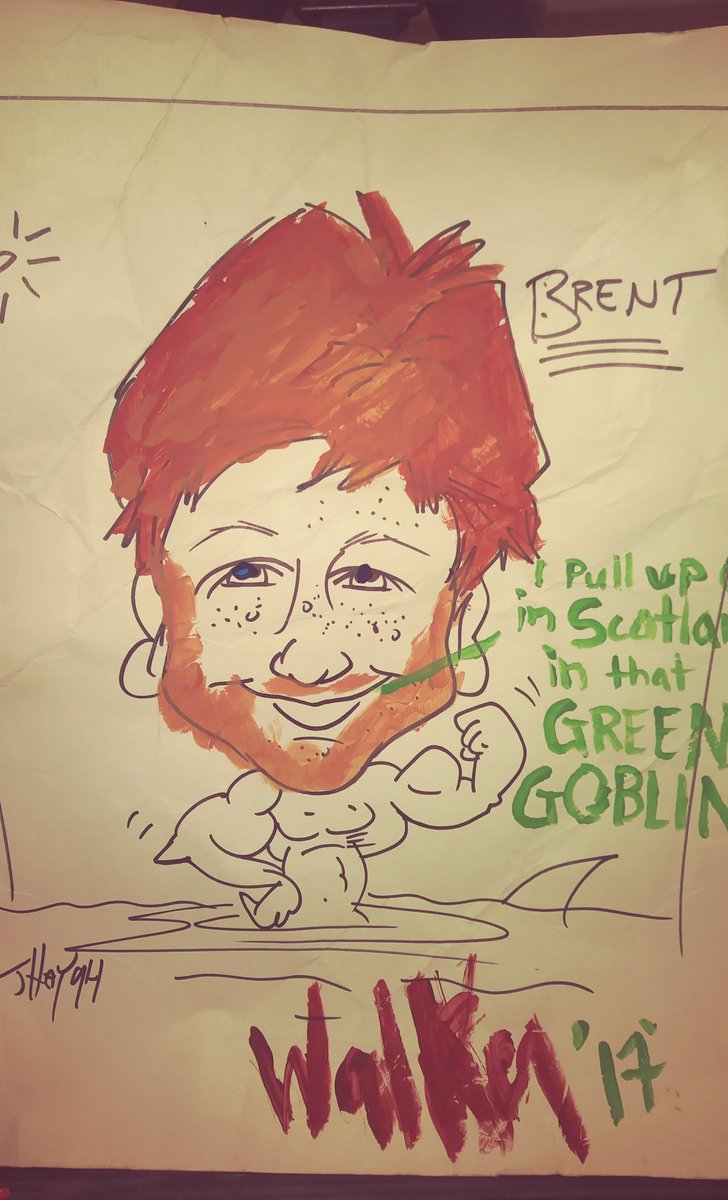 BRENT
I Pull up
in Scotlan
in that
GREEN
GOBLIN
JHOY94
Walker '17